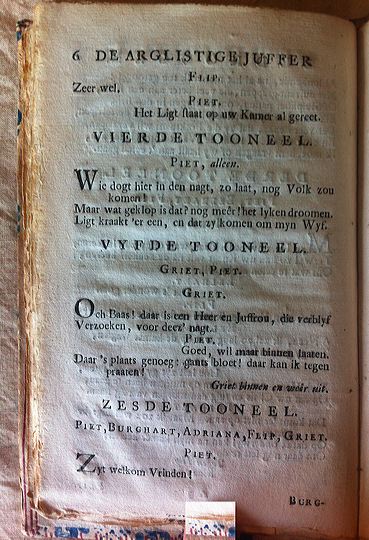 6 DE ARGLISTIGE JUFFER
FLIP.
Zeer wel.
PIET.
Het Ligt staat op uw Kamer al gereet.
VIERDE TOONEEL.
PIET, alleen.
Wie dogt hier in den nagt, zo laat, nog Volk zou
komen!
Maar wat geklop is dat? nog meêr! het lyken droomen.
Ligt kraakt 'er een, en dat zy komen om myn Wyf.
VYFDE TOONEEL.
GRIET, PIET.
GRIET.
Och Baas! daar is een Heer en Juffrou, die verblyf
Verzoeken, voor deez' nagt.
PIET.
Goed, wil maar binnen laaten.
Daar 's plaats genoeg: gants bloet! daar kan ik tegen
praaten!
Griet binnen en weêr uit.
ZESDE TOONEEL.
PIET, BURGHART, ADRIANA, FLIP, GRIET.
PIET.
Zyt welkom Vrinden!
BURG-